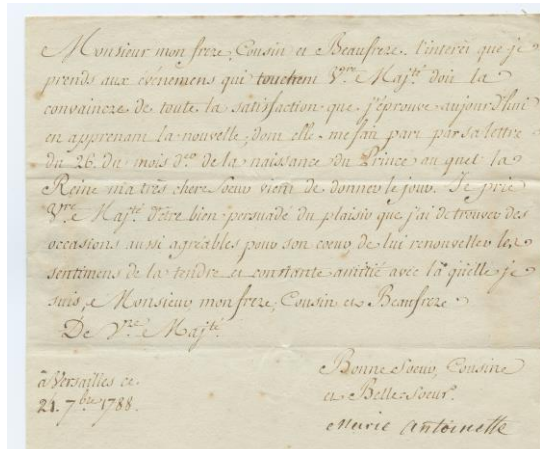 Monsieur mon frere, Cousin et Beaufrere. l'interêt que je
prends aux événemens qui touchent V.re Maj.té doit la
convaincre de toute la satisfaction que j'éprouve aujourd'hui
en apprenant la nouvelle, dont elle me fait part par sa lettre
du 26. du mois d.er de la naissance du Prince au quel la
Reine ma très chere Soeur vient de donner le jour. Je prie
V.re Maj.té d'être bien persuadé du plaisir que j'ai de trouver des
occasions aussi agréables pour son coeur de lui renouveller les
sentimens de la tendre et constante amitié avec la quelle je
suis, Monsieur mon frere, Cousin et Beaufrere
De V.re Maj.té
Bonne Soeur, Cousine
et Belle-Soeur.
Marie Antoinette
à Versailles ce
21. 7.bre 1788.